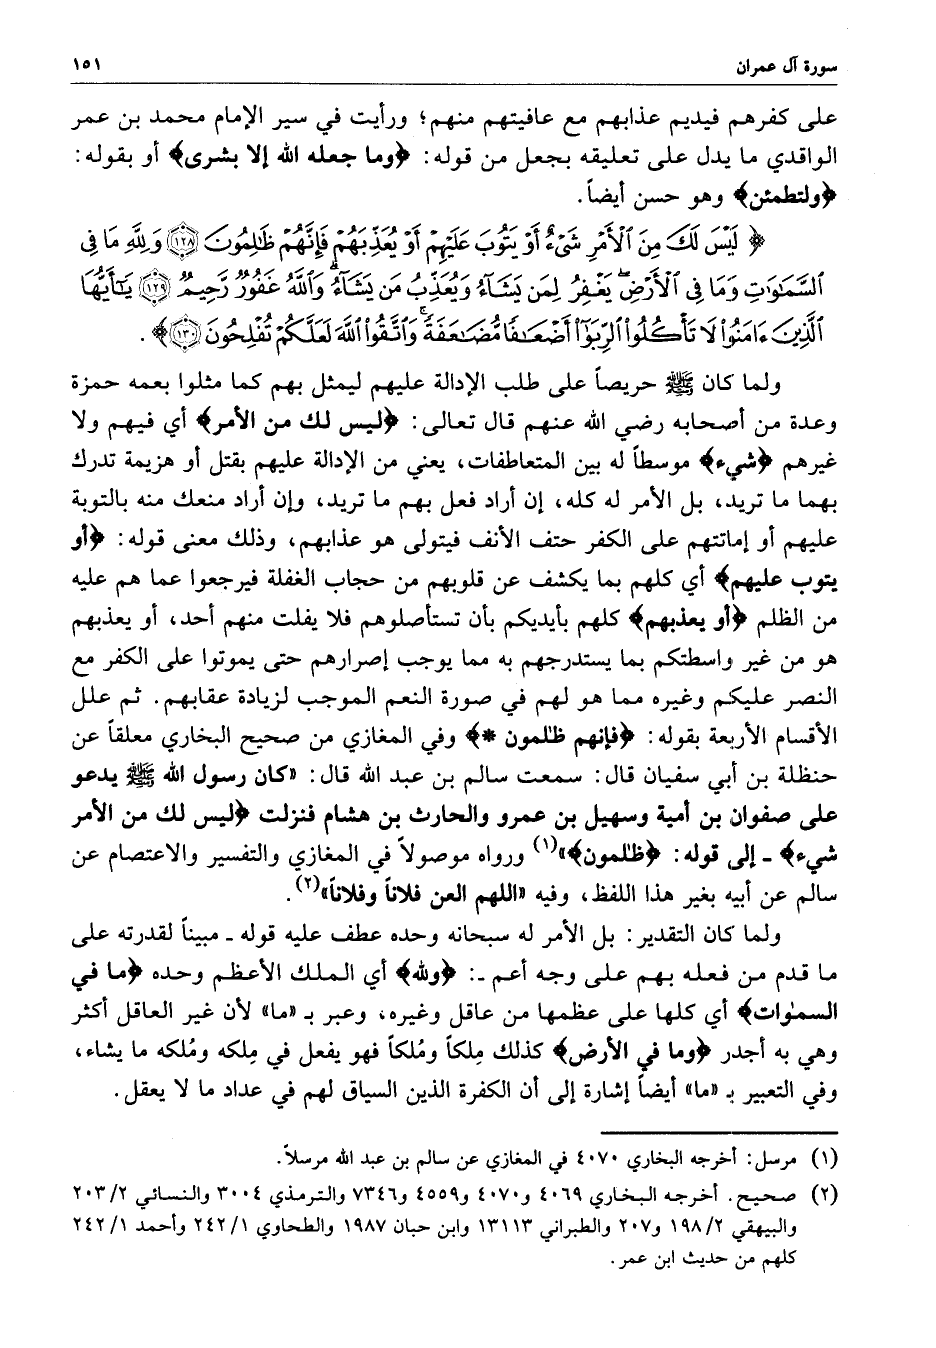 سورة آل عمران ١٥١
على كفرهم فيديم عذابهم مع عافيتهم منهم؛ ورأيت في سير الإمام محمد بن عمر
الواقدي ما يدل على تعليقه بجعل من قوله: ﴿وما جعله الله إلا بشرى﴾ أو بقوله:
﴿ولتطمئن﴾ وهو حسن أيضاً.
﴿ لَيْسَ لَكَ مِنَ ٱلْأَمْرِ شَىْءٌ أَوْ يَتُوبَ عَلَيْهِمْ أَوْ يُعَذِّبَهُمْ فَإِنَّهُمْ ظَٰلِمُونَ ۝١٢٨ وَلِلَّهِ مَا فِى
ٱلسَّمَٰوَٰتِ وَمَا فِى ٱلْأَرْضِ ۚ يَغْفِرُ لِمَن يَشَآءُ وَيُعَذِّبُ مَن يَشَآءُ ۚ وَٱللَّهُ غَفُورٌ رَّحِيمٌ ۝١٢٩ يَٰٓأَيُّهَا
ٱلَّذِينَ ءَامَنُوا۟ لَا تَأْكُلُوا۟ ٱلرِّبَوٰٓا۟ أَضْعَٰفًا مُّضَٰعَفَةً ۖ وَٱتَّقُوا۟ ٱللَّهَ لَعَلَّكُمْ تُفْلِحُونَ ۝١٣٠﴾.
ولما كان ﷺ حريصاً على طلب الإدالة عليهم ليمثل بهم كما مثلوا بعمه حمزة
وعدة من أصحابه رضي الله عنهم قال تعالى: ﴿ليس لك من الأمر﴾ أي فيهم ولا
غيرهم ﴿شيء﴾ موسطاً له بين المتعاطفات، يعني من الإدالة عليهم بقتل أو هزيمة تدرك
بهما ما تريد، بل الأمر له كله، إن أراد فعل بهم ما تريد، وإن أراد منعك منه بالتوبة
عليهم أو إماتتهم على الكفر حتف الأنف فيتولى هو عذابهم، وذلك معنى قوله: ﴿أو
يتوب عليهم﴾ أي كلهم بما يكشف عن قلوبهم من حجاب الغفلة فيرجعوا عما هم عليه
من الظلم ﴿أو يعذبهم﴾ كلهم بأيديكم بأن تستأصلوهم فلا يفلت منهم أحد، أو يعذبهم
هو من غير واسطتكم بما يستدرجهم به مما يوجب إصرارهم حتى يموتوا على الكفر مع
النصر عليكم وغيره مما هو لهم في صورة النعم الموجب لزيادة عقابهم. ثم علل
الأقسام الأربعة بقوله: ﴿فإنهم ظٰلمون *﴾ وفي المغازي من صحيح البخاري معلقاً عن
حنظلة بن أبي سفيان قال: سمعت سالم بن عبد الله قال: «كان رسول الله ﷺ يدعو
على صفوان بن أمية وسهيل بن عمرو والحارث بن هشام فنزلت ﴿ليس لك من الأمر
شيء﴾ ـ إلى قوله: ﴿ظٰلمون﴾»(١) ورواه موصولاً في المغازي والتفسير والاعتصام عن
سالم عن أبيه بغير هذا اللفظ، وفيه «اللهم العن فلاناً وفلاناً»(٢).
ولما كان التقدير: بل الأمر له سبحانه وحده عطف عليه قوله ـ مبيناً لقدرته على
ما قدم من فعله بهم على وجه أعم ـ: ﴿ولله﴾ أي الملك الأعظم وحده ﴿ما في
السمٰوات﴾ أي كلها على عظمها من عاقل وغيره، وعبر بـ «ما» لأن غير العاقل أكثر
وهي به أجدر ﴿وما في الأرض﴾ كذلك مِلكاً ومُلكاً فهو يفعل في مِلكه ومُلكه ما يشاء،
وفي التعبير بـ «ما» أيضاً إشارة إلى أن الكفرة الذين السياق لهم في عداد ما لا يعقل.
(١) مرسل: أخرجه البخاري ٤٠٧٠ في المغازي عن سالم بن عبد الله مرسلاً.
(٢) صحيح. أخرجه البخاري ٤٠٦٩ و٤٠٧٠ و٤٥٥٩ و٧٣٤٦ والترمذي ٣٠٠٤ والنسائي ٢/ ٢٠٣
والبيهقي ٢/ ١٩٨ و٢٠٧ والطبراني ١٣١١٣ وابن حبان ١٩٨٧ والطحاوي ١/ ٢٤٢ وأحمد ١/ ٢٤٢
كلهم من حديث ابن عمر.